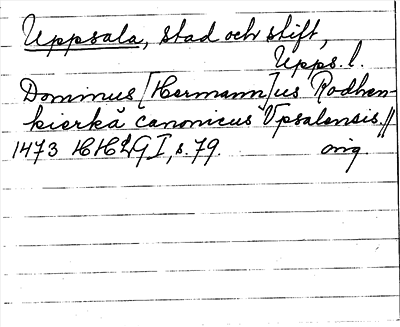 Uppsala, stad och stift,
Upps. l.
Dominus [Hermann]us Rodhen-
kierka canonicus Vpsalensis.//
1473 HHLG I, s. 79. orig